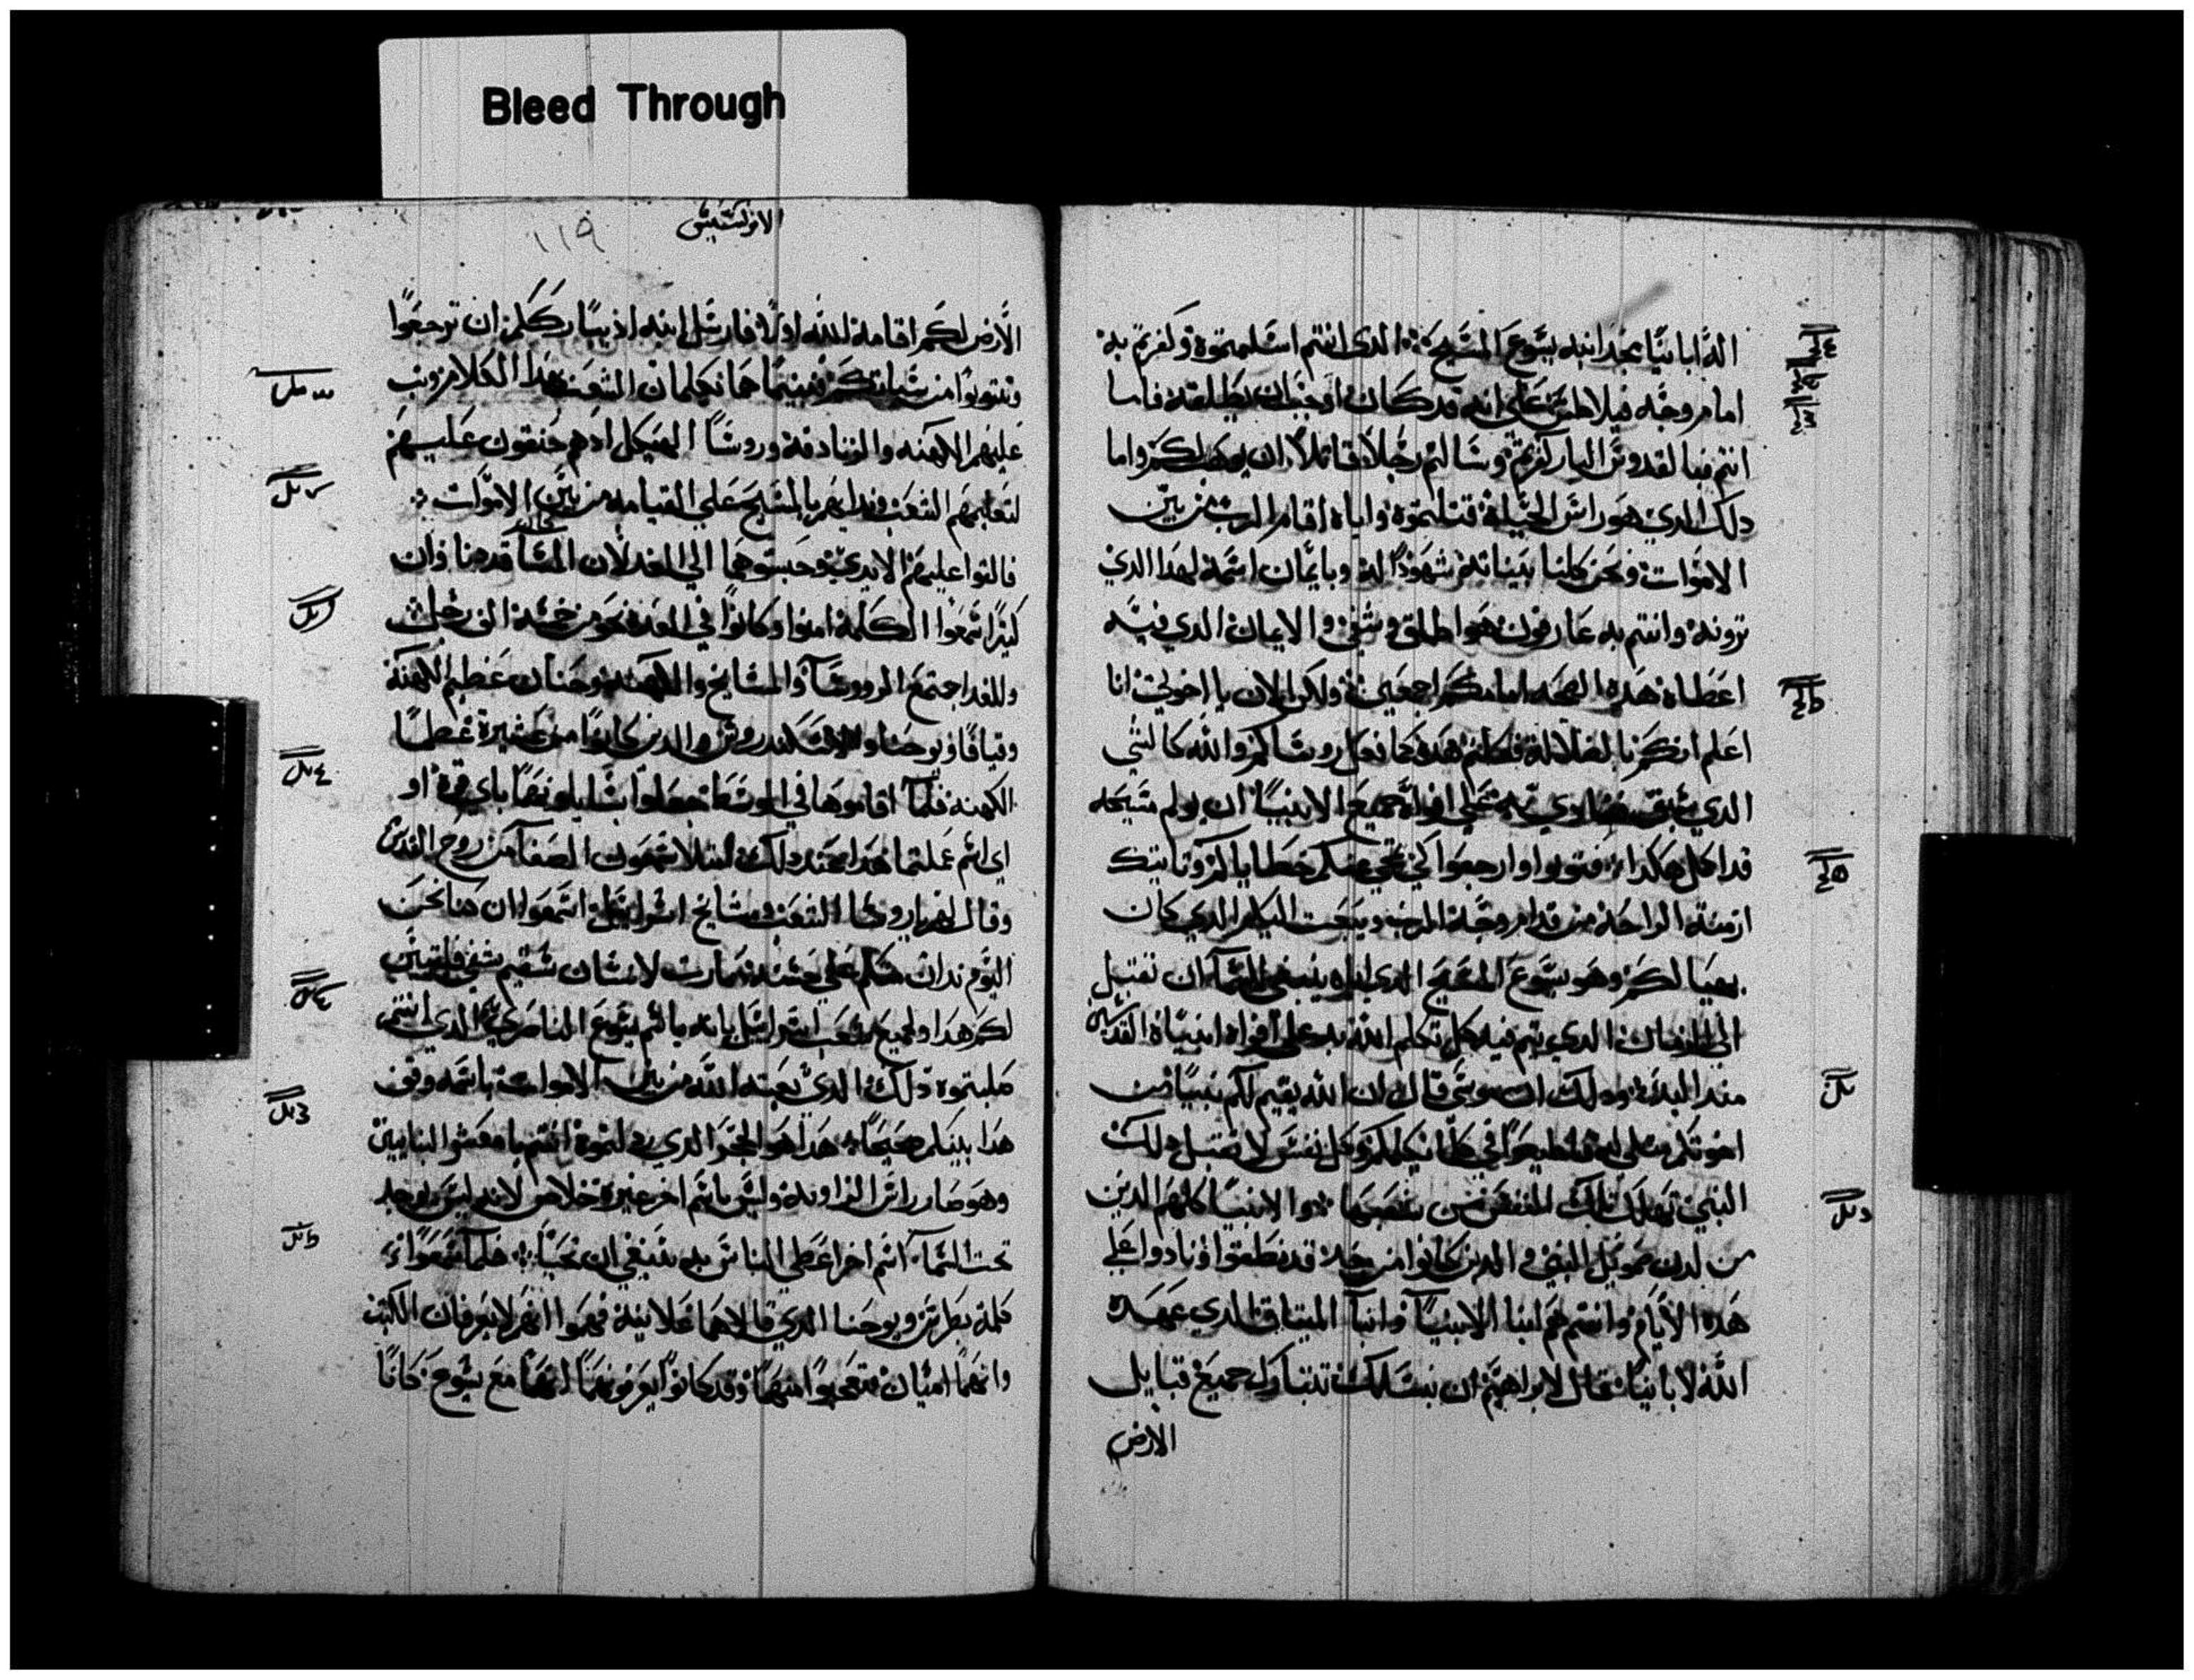 Bleed Through
الله ابائنا مجد ابنه يسوع المسيح الدي انتم اسلمتموه وكفرتم به
امام وجه فيلاطس علي انه قد كان اوجب ان يطلقه فاما
انتم فبالقدوس البار كفرتم وسالتم رجلا قاتلا ان يوهب لكم واما
دلك الدي هو راس الحياة قتلتموه واياه اقام الرب من بين
الاموات ونحن كلنا شهودا له وبايمان اسمه لهدا الدي
ترونه وانتم به عارفون هو اطلق وشفي والايمان الدي فيه
اعطاه هده الصحه امامكم اجمعين ولكن الان يا اخوتي انا
اعلم انكم بالضلالة فعلتم هده كما فعل روساكم والله كالشي
الدي سبق ونادي به علي افواه جميع الانبيا ان يولم مسيحه
قد اكمل هكدا فتوبوا وارجعوا كي تمحي عنكم خطاياكم وتاتيكم
ازمنة الراحة من قدام وجه الرب ويبعث اليكم الدي كان
مهيا لكم وهو يسوع المسيح الدي اياه ينبغي للسما ان تقبل
الي الزمان الدي يتم فيه كل تكلم الله به علي افواه انبياه القديسين
مند البدء ودلك ان موسي قال ان الله يقيم لكم نبيا من
اخوتكم مثلي له فاطيعوا في كلما يكلمكم وكل نفس لا تقبل دلك
النبي تهلك تلك النفس من شعبها والانبيا كلهم الدين
من لدن صمويل النبي والدين كانوا من بعده قد نطقوا ونادوا علي
هده الايام وانتم هم ابنا الانبيا وابنا الميثاق الدي عهده
الله لابائنا فقال لابراهيم ان بنسلك تتبارك جميع قبايل
الارض
١١٩
الابركسيس
الارض لكم اقامة الله اولا فارسل ابنه اد يبارككم ان ترجعوا
وتتوبوا من سياتكم فبينما هما يكلمان الشعب بهدا الكلام وثب
عليهم الكهنه والزنادقة وروسا الهيكل اد هم حنقون عليهم
لتعليمهم الشعب وندايهم بالمسيح علي القيامه من بين الاموات
فالقوا عليهم الايدي وحبسوهما الي الغد لان المسا قد دنا وان
كثيرا سمعوا الكلمة امنوا وكانوا في العدد نحو من خمسة الف رجل
وللغد اجتمع الروسا والمشايخ والكهنه وحنان عظيم الكهنة
وقيافا ويوحنا والاسكندروس والدين كانوا من عشيرة عظما
الكهنه فلما اقاموها في الوسط جعلوا يسايلونهما باي قوة او
اي اسم عملتما هدا عند دلك امتلا شمعون الصفا من روح القدس
وقال لهم يا روسا الشعب ومشايخ اسراييل اسمعوا ان هنا نحن
اليوم ندان منكم علي حسنه صارت لانسان سقيم شفي فليتبين
لكم هدا ولجميع شعب اسراييل بانه باسم يسوع الناصري الدي انتم
صلبتموه دلك الدي بعثه الله من بين الاموات باسمه وقف
هدا بينكم صحيحا هدا هو الحجر الدي ردلتموه انتم يا معشر البنايين
وهو صار راس الزاوية وليس باسم اخر غيره خلاص لانه ليس يوجد
تحت السما اسم اخر اعطي الناس به ينبغي ان نحيا فلما سمعوا
كلمة بطرس ويوحنا الدي قالاها علانية فهموا انهم لا يعرفان الكتب
وانهما اميان تعجبوا منهما وقد كانوا يعرفونهما انهما مع يسوع كانا